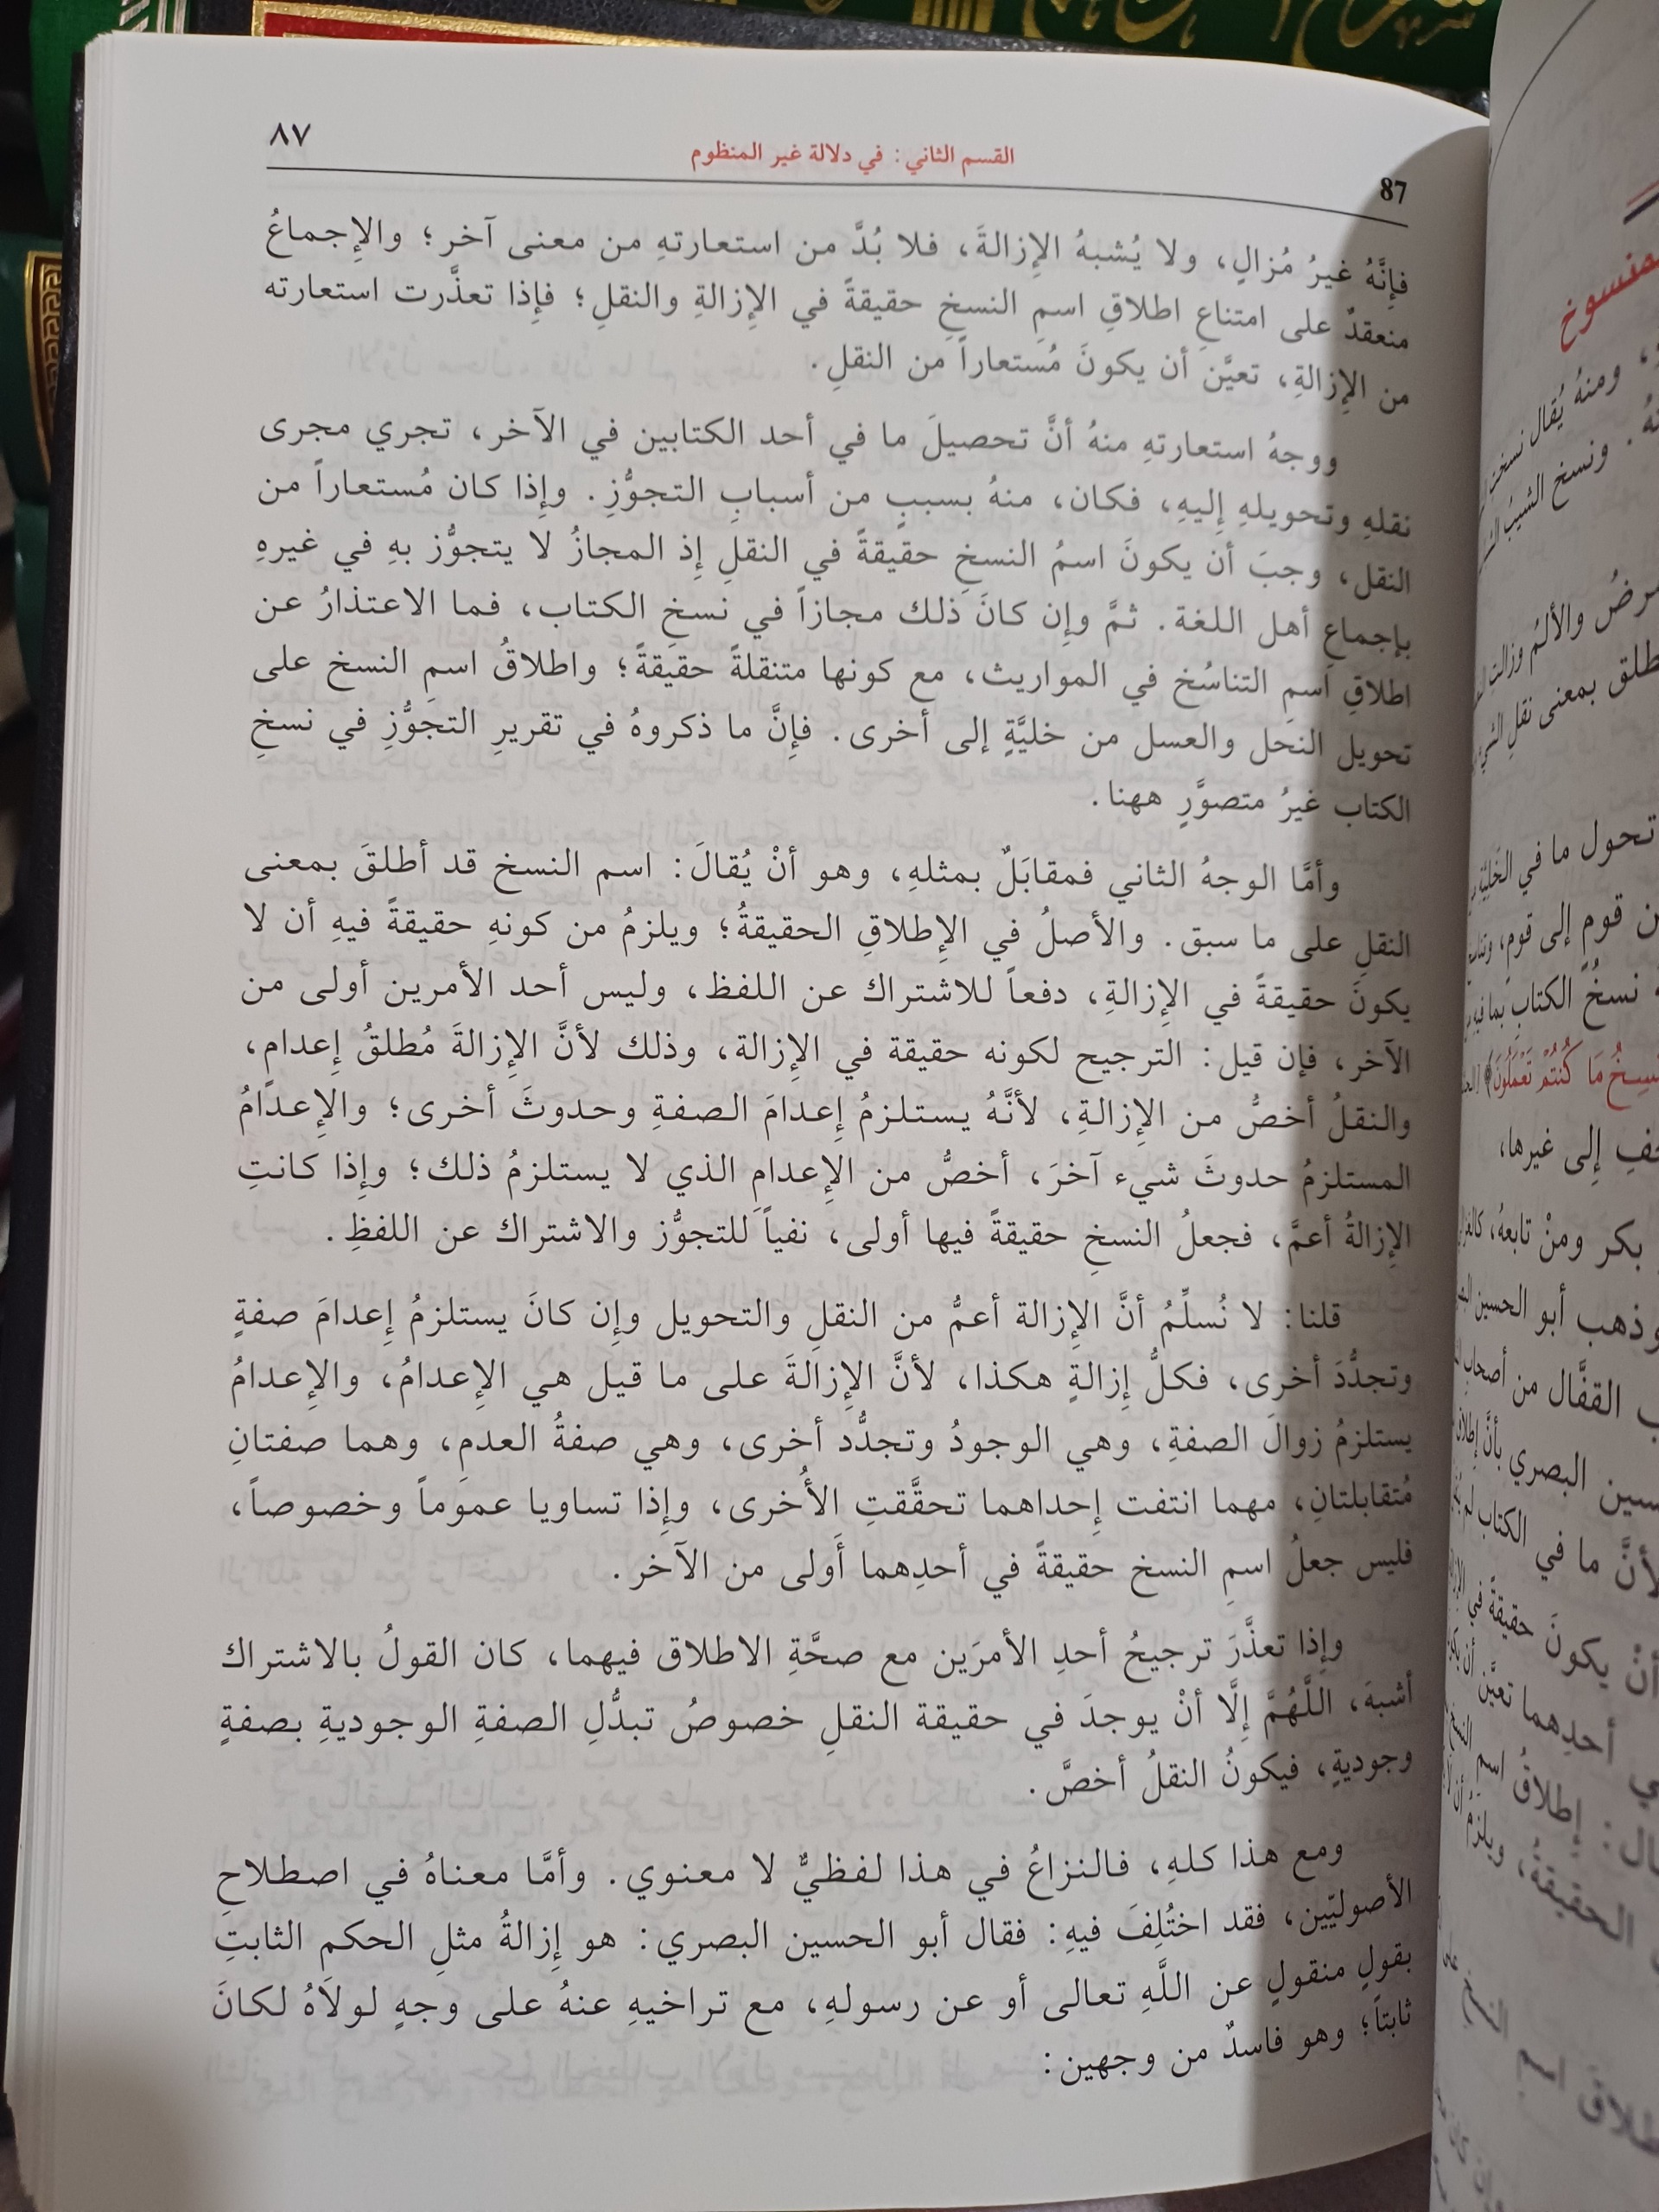 القسم الثاني: في دلالة غير المنظوم
٨٧
87
فإِنَّهُ غيرُ مُزالٍ، ولا يُشبهُ الإِزالةَ، فلا بُدَّ من استعارتهِ من معنى آخر؛ والإِجماعُ
منعقدٌ على امتناعِ اطلاقِ اسمِ النسخِ حقيقةً في الإِزالةِ والنقلِ؛ فإِذا تعذَّرت استعارته
من الإِزالةِ، تعيَّن أن يكونَ مُستعاراً من النقلِ.
ووجهُ استعارتهِ منهُ أنَّ تحصيلَ ما في أحد الكتابين في الآخر، تجري مجرى
نقلهِ وتحويلهِ إِليهِ، فكان، منهُ بسببٍ من أسبابِ التجوُّزِ. وإِذا كان مُستعاراً من
النقل، وجبَ أن يكونَ اسمُ النسخِ حقيقةً في النقلِ إِذ المجازُ لا يتجوُّز بهِ في غيرهِ
بإجماعِ أهل اللغة. ثمَّ وإِن كانَ ذلك مجازاً في نسخِ الكتاب، فما الاعتذارُ عن
اطلاقِ اسمِ التناسُخ في المواريث، مع كونها متنقلةً حقيقةً؛ واطلاقُ اسمِ النسخ على
تحويل النحل والعسل من خليَّةٍ إلى أخرى. فإِنَّ ما ذكروهُ في تقريرِ التجوُّزِ في نسخِ
الكتاب غيرُ متصوَّرٍ ههنا.
وأمَّا الوجهُ الثاني فمقابَلٌ بمثلهِ، وهو أنْ يُقالَ: اسم النسخ قد أطلقَ بمعنى
النقلِ على ما سبق. والأصلُ في الإِطلاقِ الحقيقةُ؛ ويلزمُ من كونهِ حقيقةً فيهِ أن لا
يكونَ حقيقةً في الإِزالةِ، دفعاً للاشتراك عن اللفظ، وليس أحد الأمرين أولى من
الآخر، فإن قيل: الترجيح لكونه حقيقة في الإِزالة، وذلك لأنَّ الإِزالةَ مُطلقُ إِعدامٍ،
والنقلُ أخصُّ من الإِزالةِ، لأنَّهُ يستلزمُ إِعدامَ الصفةِ وحدوثَ أخرى؛ والإِعدامُ
المستلزمُ حدوثَ شيء آخرَ، أخصُّ من الإِعدامِ الذي لا يستلزمُ ذلك؛ وإِذا كانتِ
الإِزالةُ أعمَّ، فجعلُ النسخِ حقيقةً فيها أولى، نفياً للتجوُّز والاشتراك عن اللفظِ.
قلنا: لا نُسلِّمُ أنَّ الإِزالة أعمُّ من النقلِ والتحويل وإِن كانَ يستلزمُ إِعدامَ صفةٍ
وتجدُّدَ أخرى، فكلُّ إِزالةٍ هكذا، لأنَّ الإِزالةَ على ما قيل هي الإِعدامُ، والإِعدامُ
يستلزمُ زوالَ الصفةِ، وهي الوجودُ وتجدُّد أخرى، وهي صفةُ العدمِ، وهما صفتانِ
مُتقابلتانِ، مهما انتفت إِحداهما تحقَّقتِ الأُخرى، وإِذا تساويا عموماً وخصوصاً،
فليس جعلُ اسمِ النسخ حقيقةً في أحدِهما أَولى من الآخر.
وإِذا تعذَّرَ ترجيحُ أحدِ الأمرَين مع صحَّةِ الاطلاق فيهما، كان القولُ بالاشتراك
أشبهَ، اللَّهُمَّ إِلَّا أنْ يوجدَ في حقيقة النقلِ خصوصُ تبدُّلِ الصفةِ الوجوديةِ بصفةٍ
وجوديةٍ، فيكونُ النقلُ أخصَّ.
ومع هذا كلهِ، فالنزاعُ في هذا لفظيٌّ لا معنوي. وأمَّا معناهُ في اصطلاحِ
الأصوليّين، فقد اختُلِفَ فيهِ: فقال أبو الحسين البصري: هو إِزالةُ مثلِ الحكمِ الثابتِ
بقولٍ منقولٍ عن اللَّهِ تعالى أو عن رسولهِ، مع تراخيهِ عنهُ على وجهٍ لولاَهُ لكانَ
ثابتاً؛ وهو فاسدٌ من وجهين:
ومنهُ يُقال نسخت
ونسخ الشيبُ
والألمُ وزالتِ
بمعنى نقلِ الشيء
تحول ما في الخَليَّةِ
قومٍ إلى قومٍ،
نسخُ الكتابِ بما فيهِ
مَا كُنتُمْ تَعْمَلُونَ
إِلى غيرها،
بكر ومنْ تابعهُ،
وذهب أبو الحسين
القفَّال من أصحابِ
البصري بأنَّ إِطلاق
ما في الكتاب لم
يكونَ حقيقةً في
أحدِهما تعيَّن أن
إطلاقُ اسمِ